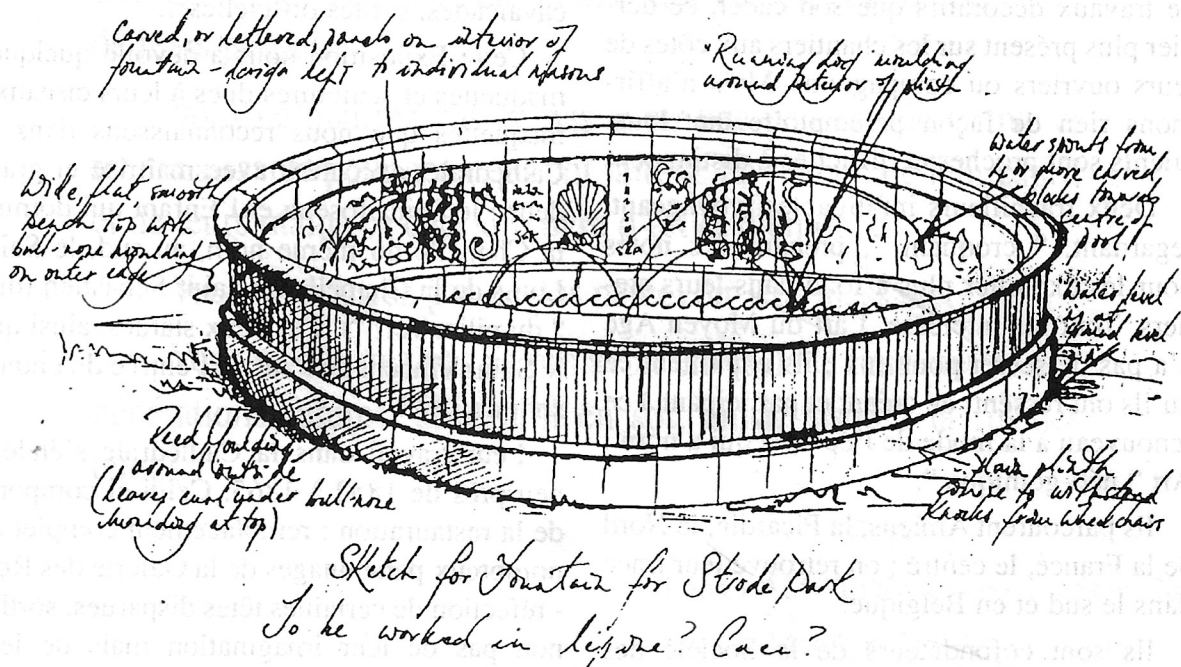 Carved, or lettered, panels on interior of
fountain - design left to individual masons
"Running dog" moulding
around interior of plinth
Water spouts from
4 or more carved
blades towards
centre of
pool
Wide, flat smooth
bench top with
bull-nose moulding
on outer edge
Water level
is at
ground level
Reed moulding
around outside
(leaves curl under bullnose
moulding at top)
Plain plinth
course to withstand
knocks from wheelchairs
Sketch for Fountain for Strode Park
To be worked in Lépine? Caen?